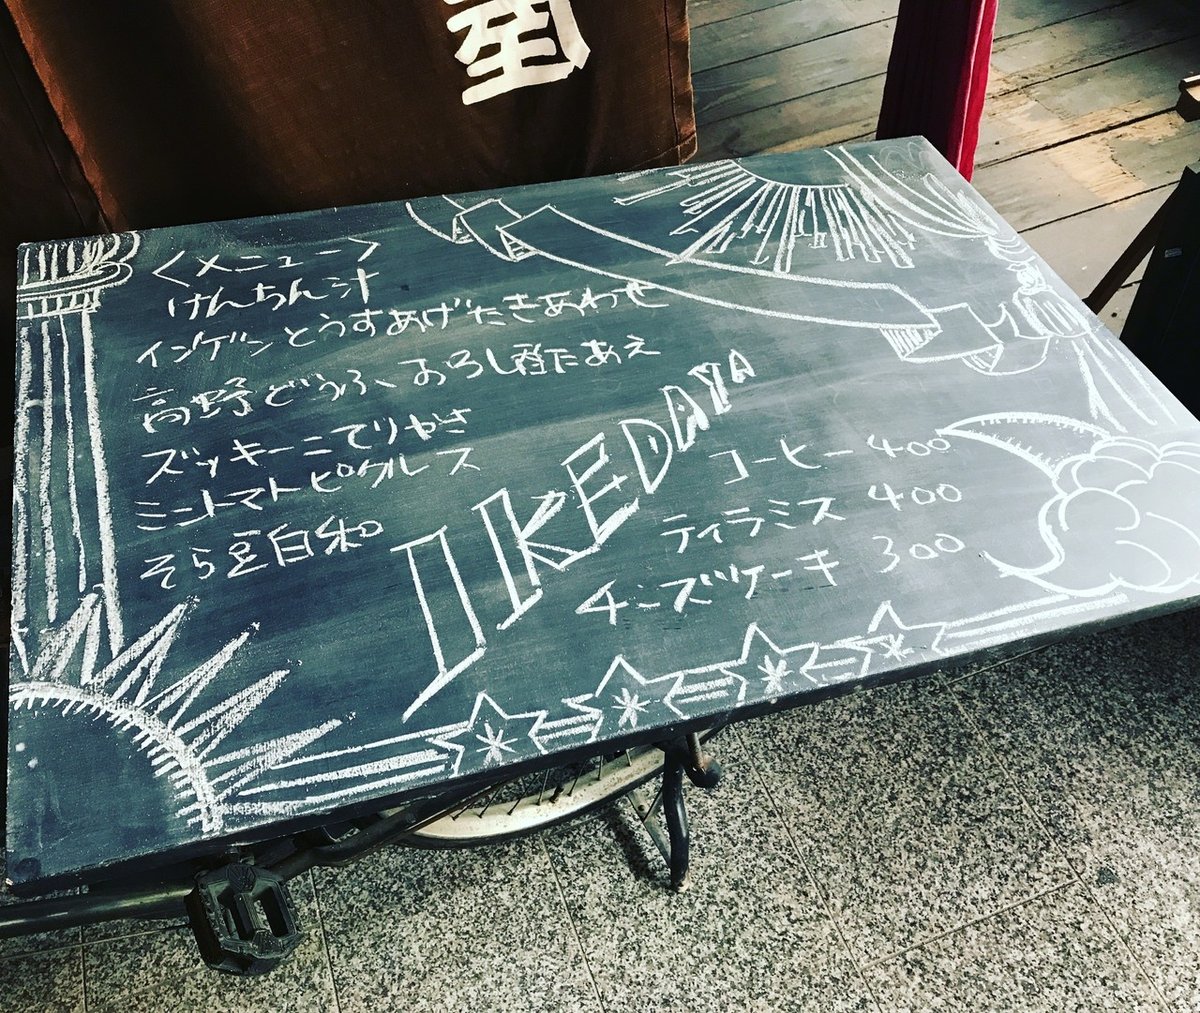 <メニュー>
けんちん汁
インゲンとうすあげたきあわせ
高野どうふ、おろし
ズッキーニてりやき
ミニトマトピクルス
そら豆白和
IKEDAYA
コーヒー 400
ティラミス 400
チーズケーキ 300